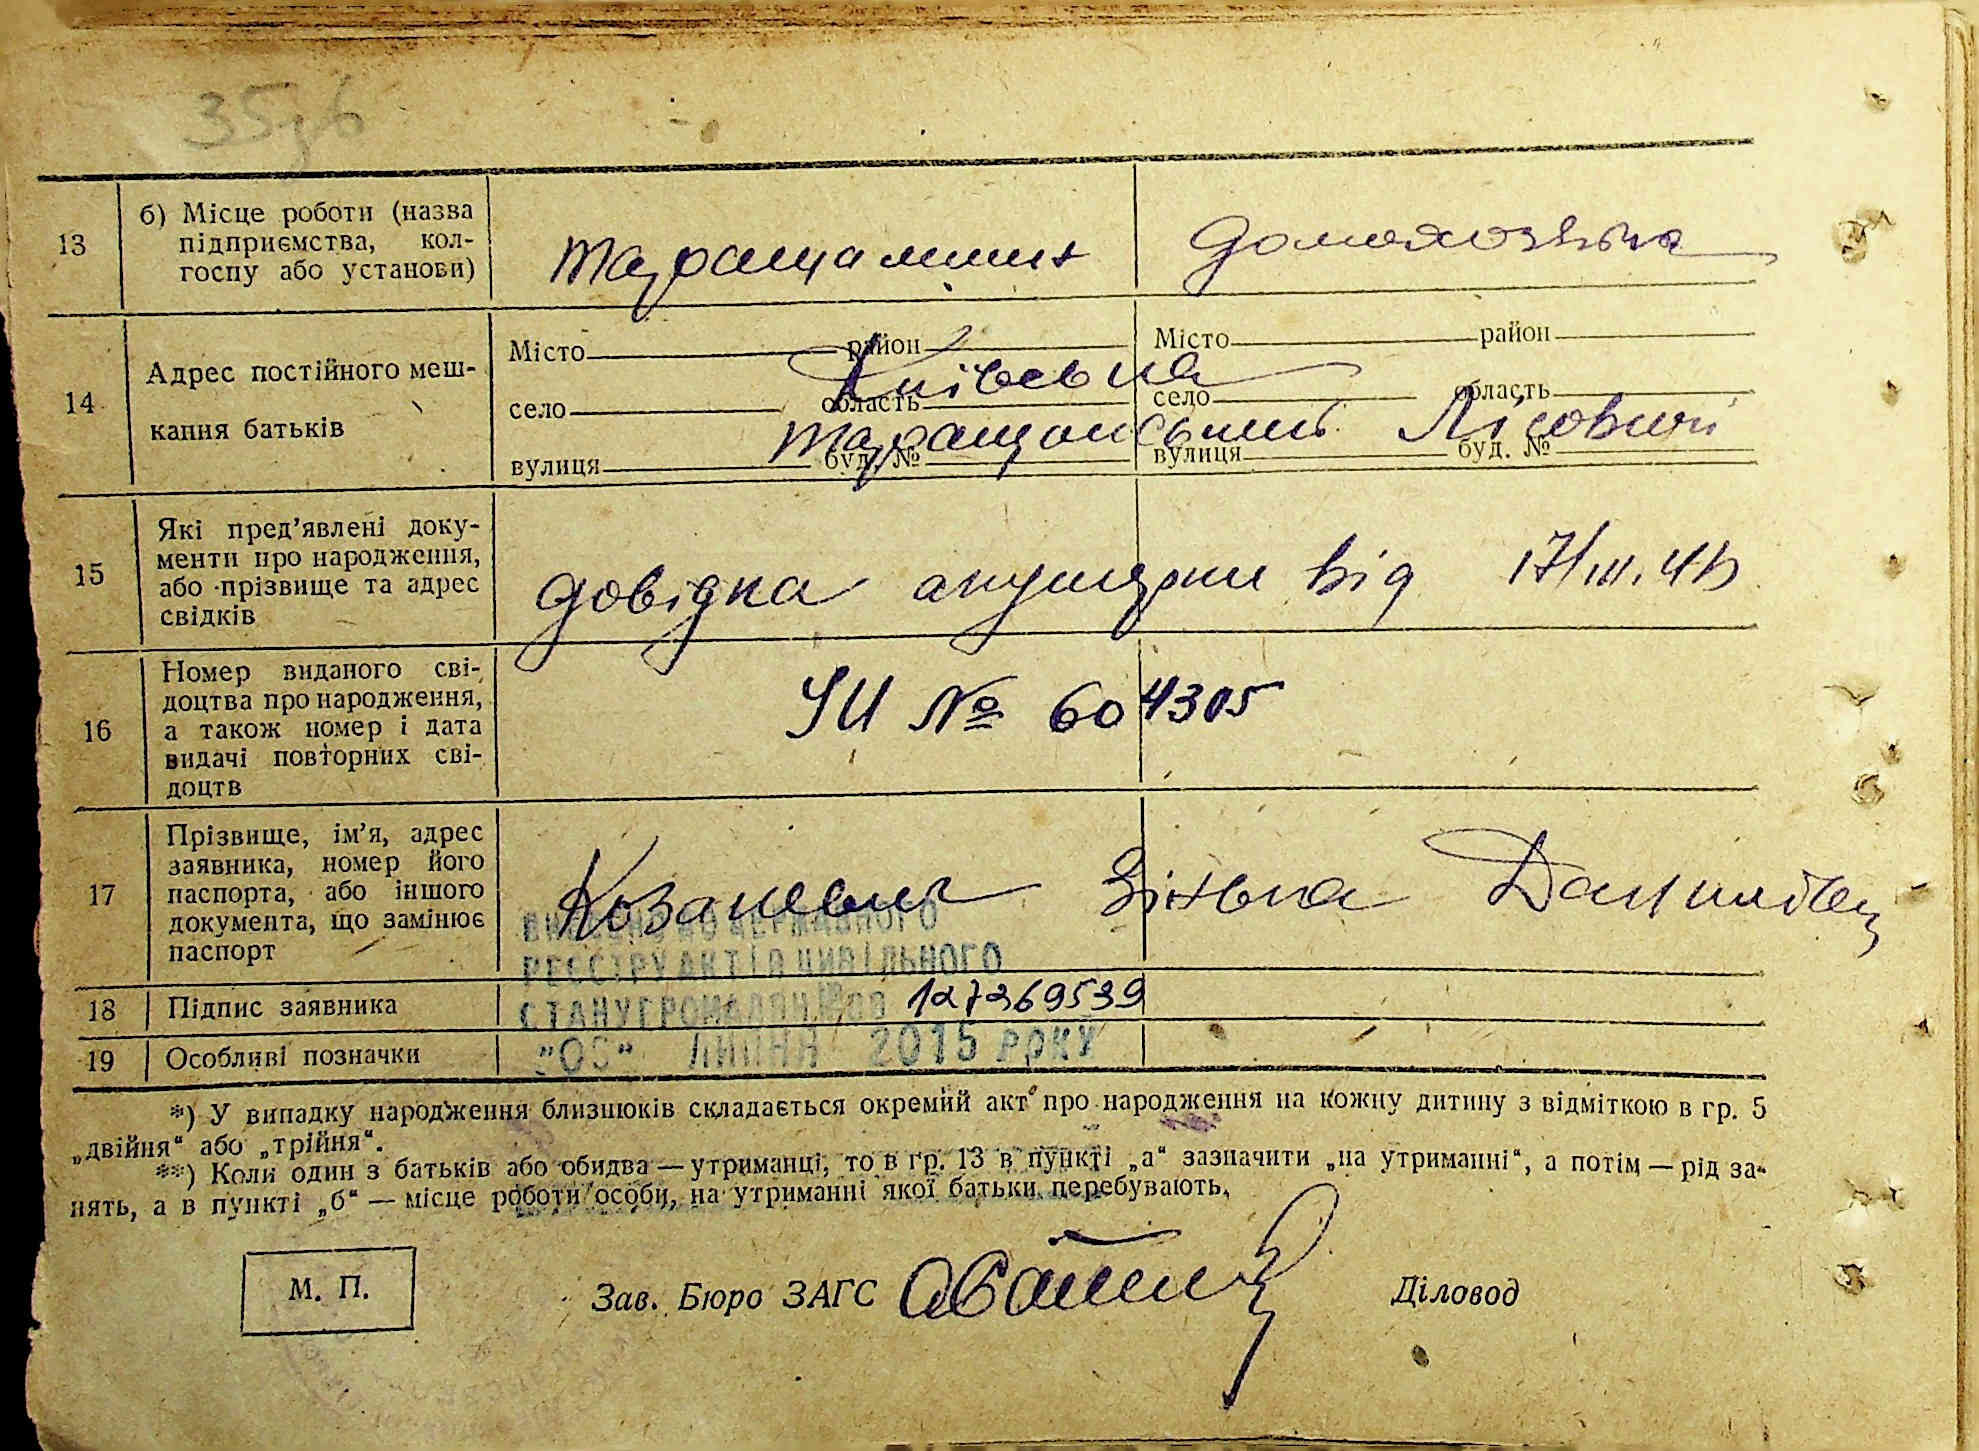 13
б) Місце роботи (назва
підприємства, кол-
госпу або установи)
домохозяйка
14
Адрес постійного меш-
кання батьків
Місто район Місто район
Київська
село область село область
Таращанський Лісовичі
вулиця буд. № вулиця буд. №
15
Які пред'явлені доку-
менти про народження,
або прізвище та адрес
свідків
довідка акушерки від 17/III.41р
16
Номер виданого сві-
доцтва про народження,
а також номер і дата
видачі повторних сві-
доцтв
УИ № 604305
17
Прізвище, ім'я, адрес
заявника, номер його
паспорта, або іншого
документа, що замінює
паспорт
Зінька
ВНЕСЕНО ДО ДЕРЖАВНОГО
РЕЄСТРУ АКТІВ ЦИВІЛЬНОГО
18 Підпис заявника
СТАНУ ГРОМАДЯН 127369539
19 Особливі позначки
ЛИПНЯ 2015 РОКУ
*) У випадку народження близнюків складається окремий акт про народження на кожну дитину з відміткою в гр. 5
„двійня“ або „трійня“.
**) Коли один з батьків або обидва — утриманці, то в гр. 13 в пункті „а“ зазначити „на утриманні“, а потім — рід за-
нять, а в пункті „б“ — місце роботи особи, на утриманні якої батьки перебувають.
М. П.
Зав. Бюро ЗАГС
Діловод